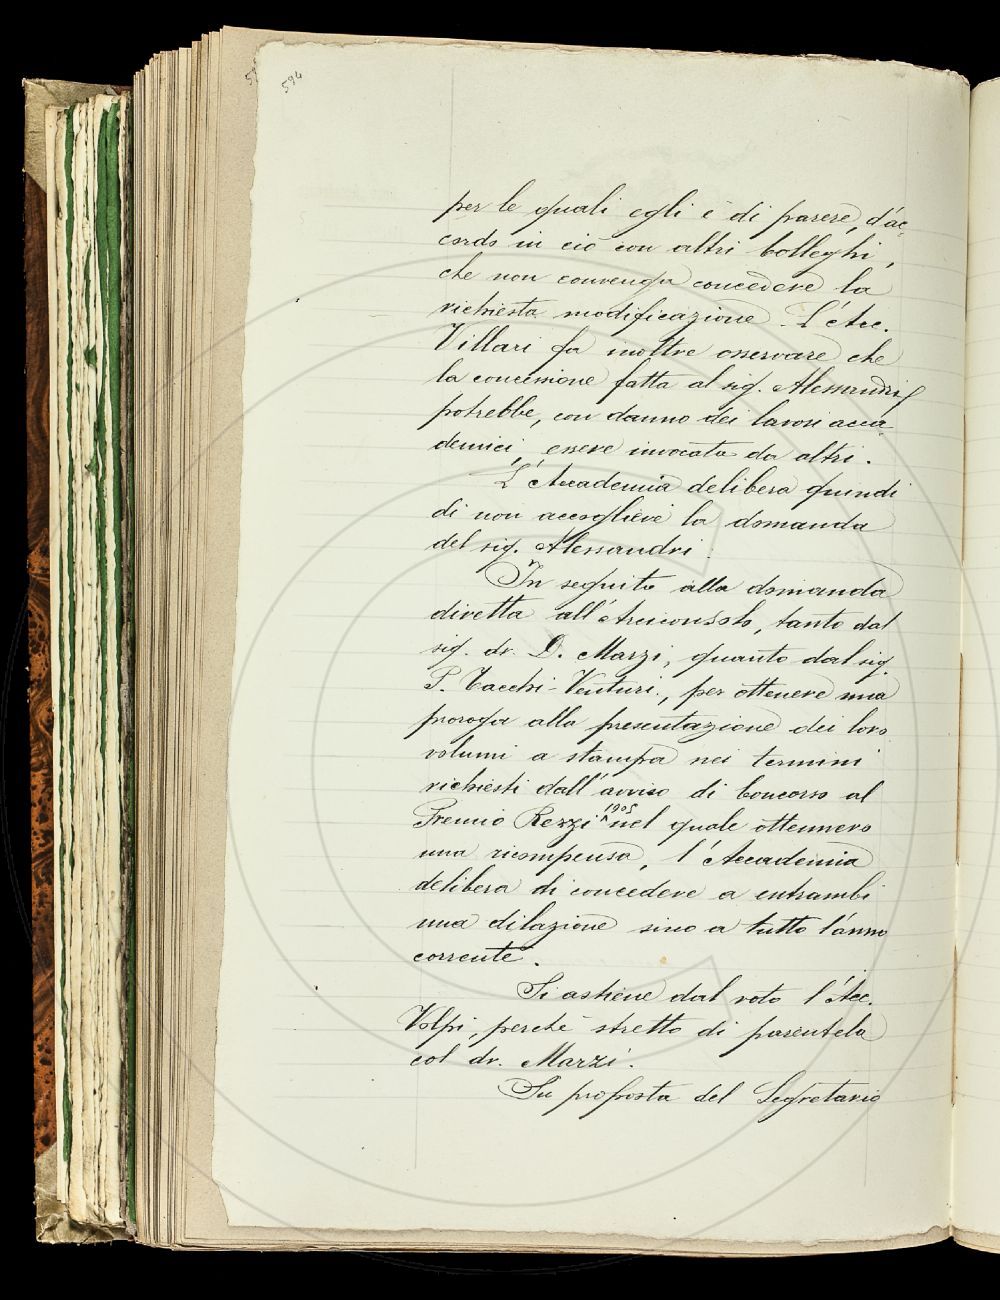 594
per le quali egli è di parere, d'ac-
cordo in ciò con altri Colleghi,
che non convenga concedere la
richiesta modificazione. L'Acc.
Villari fa inoltre osservare che
la concessione fatta al sig. Alessandri
potrebbe, con danno dei lavori acca-
demici, essere invocata da altri.
L'Accademia delibera quindi
di non accogliere la domanda
del sig. Alessandri.
In seguito alla domanda
diretta all'Arciconsolo, tanto dal
sig. dr. D. Marzi, quanto dal sig.
P. Tacchi-Venturi, per ottenere una
proroga alla presentazione dei loro
volumi a stampa nei termini
richiesti dall'avviso di Concorso al
Premio Rezzi 1905 nel quale ottennero
una ricompensa, l'Accademia
delibera di concedere a entrambi
una dilazione sino a tutto l'anno
corrente.
Si astiene dal voto l'Acc.
Volpi, perchè stretto di parentela
col dr. Marzi.
Su proposta del Segretario